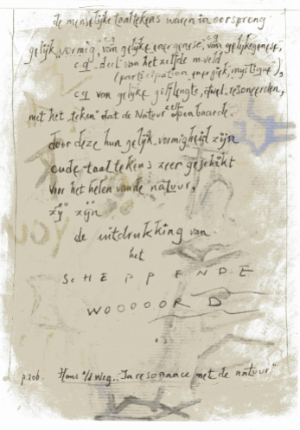 de menselijke taaltekens waren in oorsprong
gelijkvormig, van gelijke energiese, van gelijke
c.q. deel van het zelfde m.veld
(participation energiek/mystique),
c.q. van gelijke golflengte, resoneerden,
met het teken dat de Natuur zelf openbaarde.
door deze hun gelijkvormigheid zijn
oude taaltekens zeer geschikt
voor het helen van de natuur.
zij zijn
de uitdrukking van
het
SCHEPPENDE
WOOOORD
p.206. Hans v/d Weg. "In resonance met de natuur."